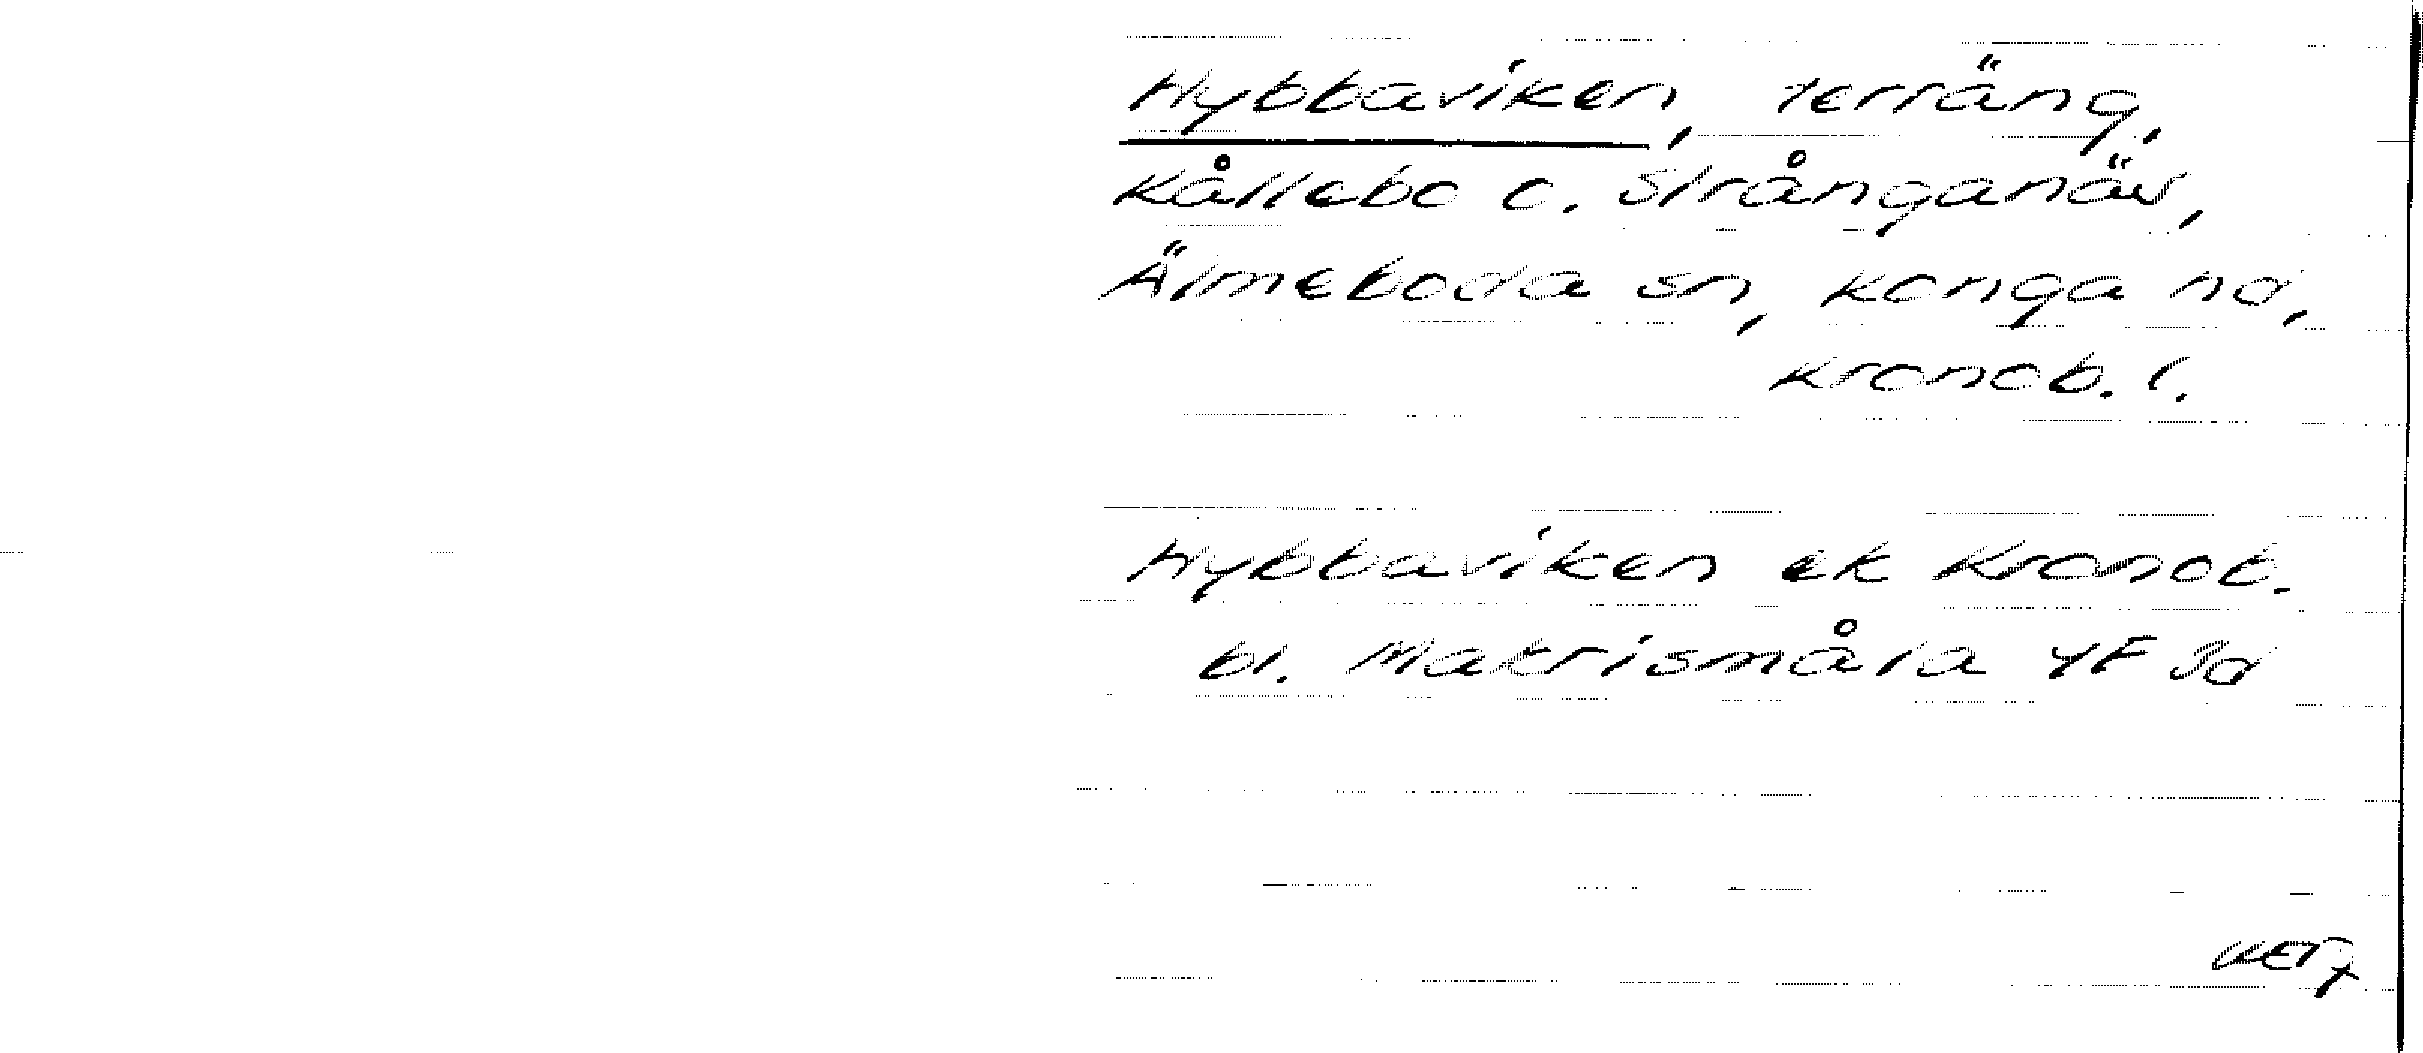 Hybbaviken, terräng,
Kållebo o. Strånganäv,
Älmeboda sn, Konga hd,
Kronob. l.
Hybbaviken ek Kronob.
bl. Makrismåla 4F 3d